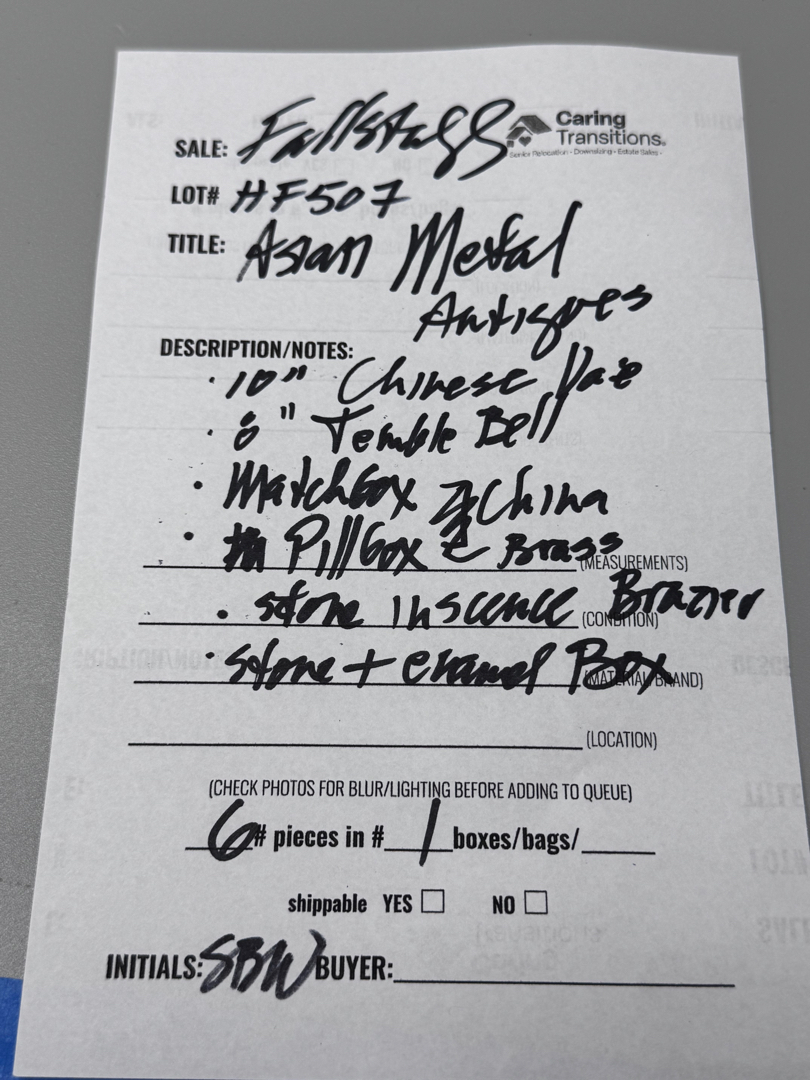 SALE: Fallstaff
Caring
Transitions.
Senior Relocation • Downsizing • Estate Sales •
LOT# HF507
TITLE: Asian Metal
Antiques
DESCRIPTION/NOTES:
• 10" Chinese Vase
• 6" Temble Bell
• Matchbox China
• Pillbox Brass
(MEASUREMENTS)
• stone inscence Brazier
(CONDITION)
• Stone + enamel Box
(MATERIAL/BRAND)
(LOCATION)
(CHECK PHOTOS FOR BLUR/LIGHTING BEFORE ADDING TO QUEUE)
6# pieces in # 1 boxes/bags/
shippable YES ☐ NO ☐
INITIALS: SBW BUYER: